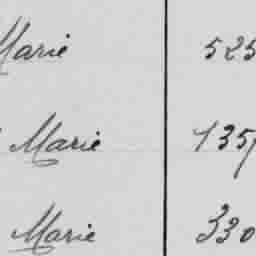 Marie 525
Marie 135
Marie 330